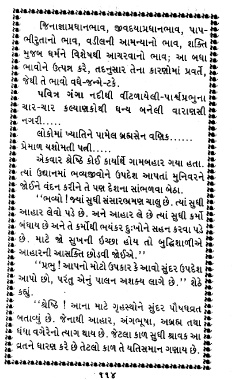 જિનાજ્ઞાપ્રધાનભાવ, જીવદયાપ્રધાનભાવ, પાપ-
ભીરુતાનો ભાવ, વડીલની આમન્યાનો ભાવ, શક્તિ
મુજબ ધર્મને વિશેષથી આચરવાનો ભાવ; આ બધા
ભાવોને ઉત્પન્ન કરે, તદનુસાર તેના કારણોમાં પ્રવર્તે,
જેથી તે ભાવો વધે-જન્મે-ટકે.
પવિત્ર ગંગા નદીથી વીંટળાયેલી-પાર્શ્વપ્રભુના
ચાર-ચાર કલ્યાણકોથી ધન્ય બનેલી વારાણસી
નગરી.....
લોકોમાં ખ્યાતિને પામેલ બ્રહ્મસેન વણિક......
પ્રેમાળ યશોમતી પત્ની.....
એકવાર શ્રેષ્ઠિ કોઈ કાર્યાર્થે ગામબહાર ગયા હતા.
ત્યાં ઉદ્યાનમાં ભવ્યજીવોને ઉપદેશ આપતાં મુનિવરને
જોઈને વંદન કરીને તે પણ દેશના સાંભળવા બેઠા.
''ભવ્યો ! જ્યાં સુધી સંસારભ્રમણ ચાલુ છે. ત્યાં સુધી
આહાર લેવો પડે છે. અને આહાર લે છે ત્યાં સુધી કર્મો
બંધાય છે અને તે કર્મોથી ભયંકર દુઃખોને સહન કરવા પડે
છે. માટે જો સુખની ઇચ્છા હોય તો બુદ્ધિશાળીએ
આહારની આસક્તિ છોડવી જોઈએ.''
''પ્રભુ ! આપનો મોટો ઉપકાર કે આવો સુંદર ઉપદેશ
આપો છો, પરંતુ એનું પાલન અશક્ય લાગે છે.'' શેઠે
કહ્યું.
''શ્રેષ્ઠિ ! આના માટે ગૃહસ્થોને સુંદર પૌષધવ્રત
બતાવ્યું છે. જેનાથી આહાર, અંગભૂષા, અબ્રહ્મ તથા
ધંધા વગેરેનો ત્યાગ થાય છે. જેટલા કાળ સુધી શ્રાવક આ
વ્રતને ધારણ કરે છે તેટલો કાળ તે યતિસમાન ગણાય છે.
૧૧૪